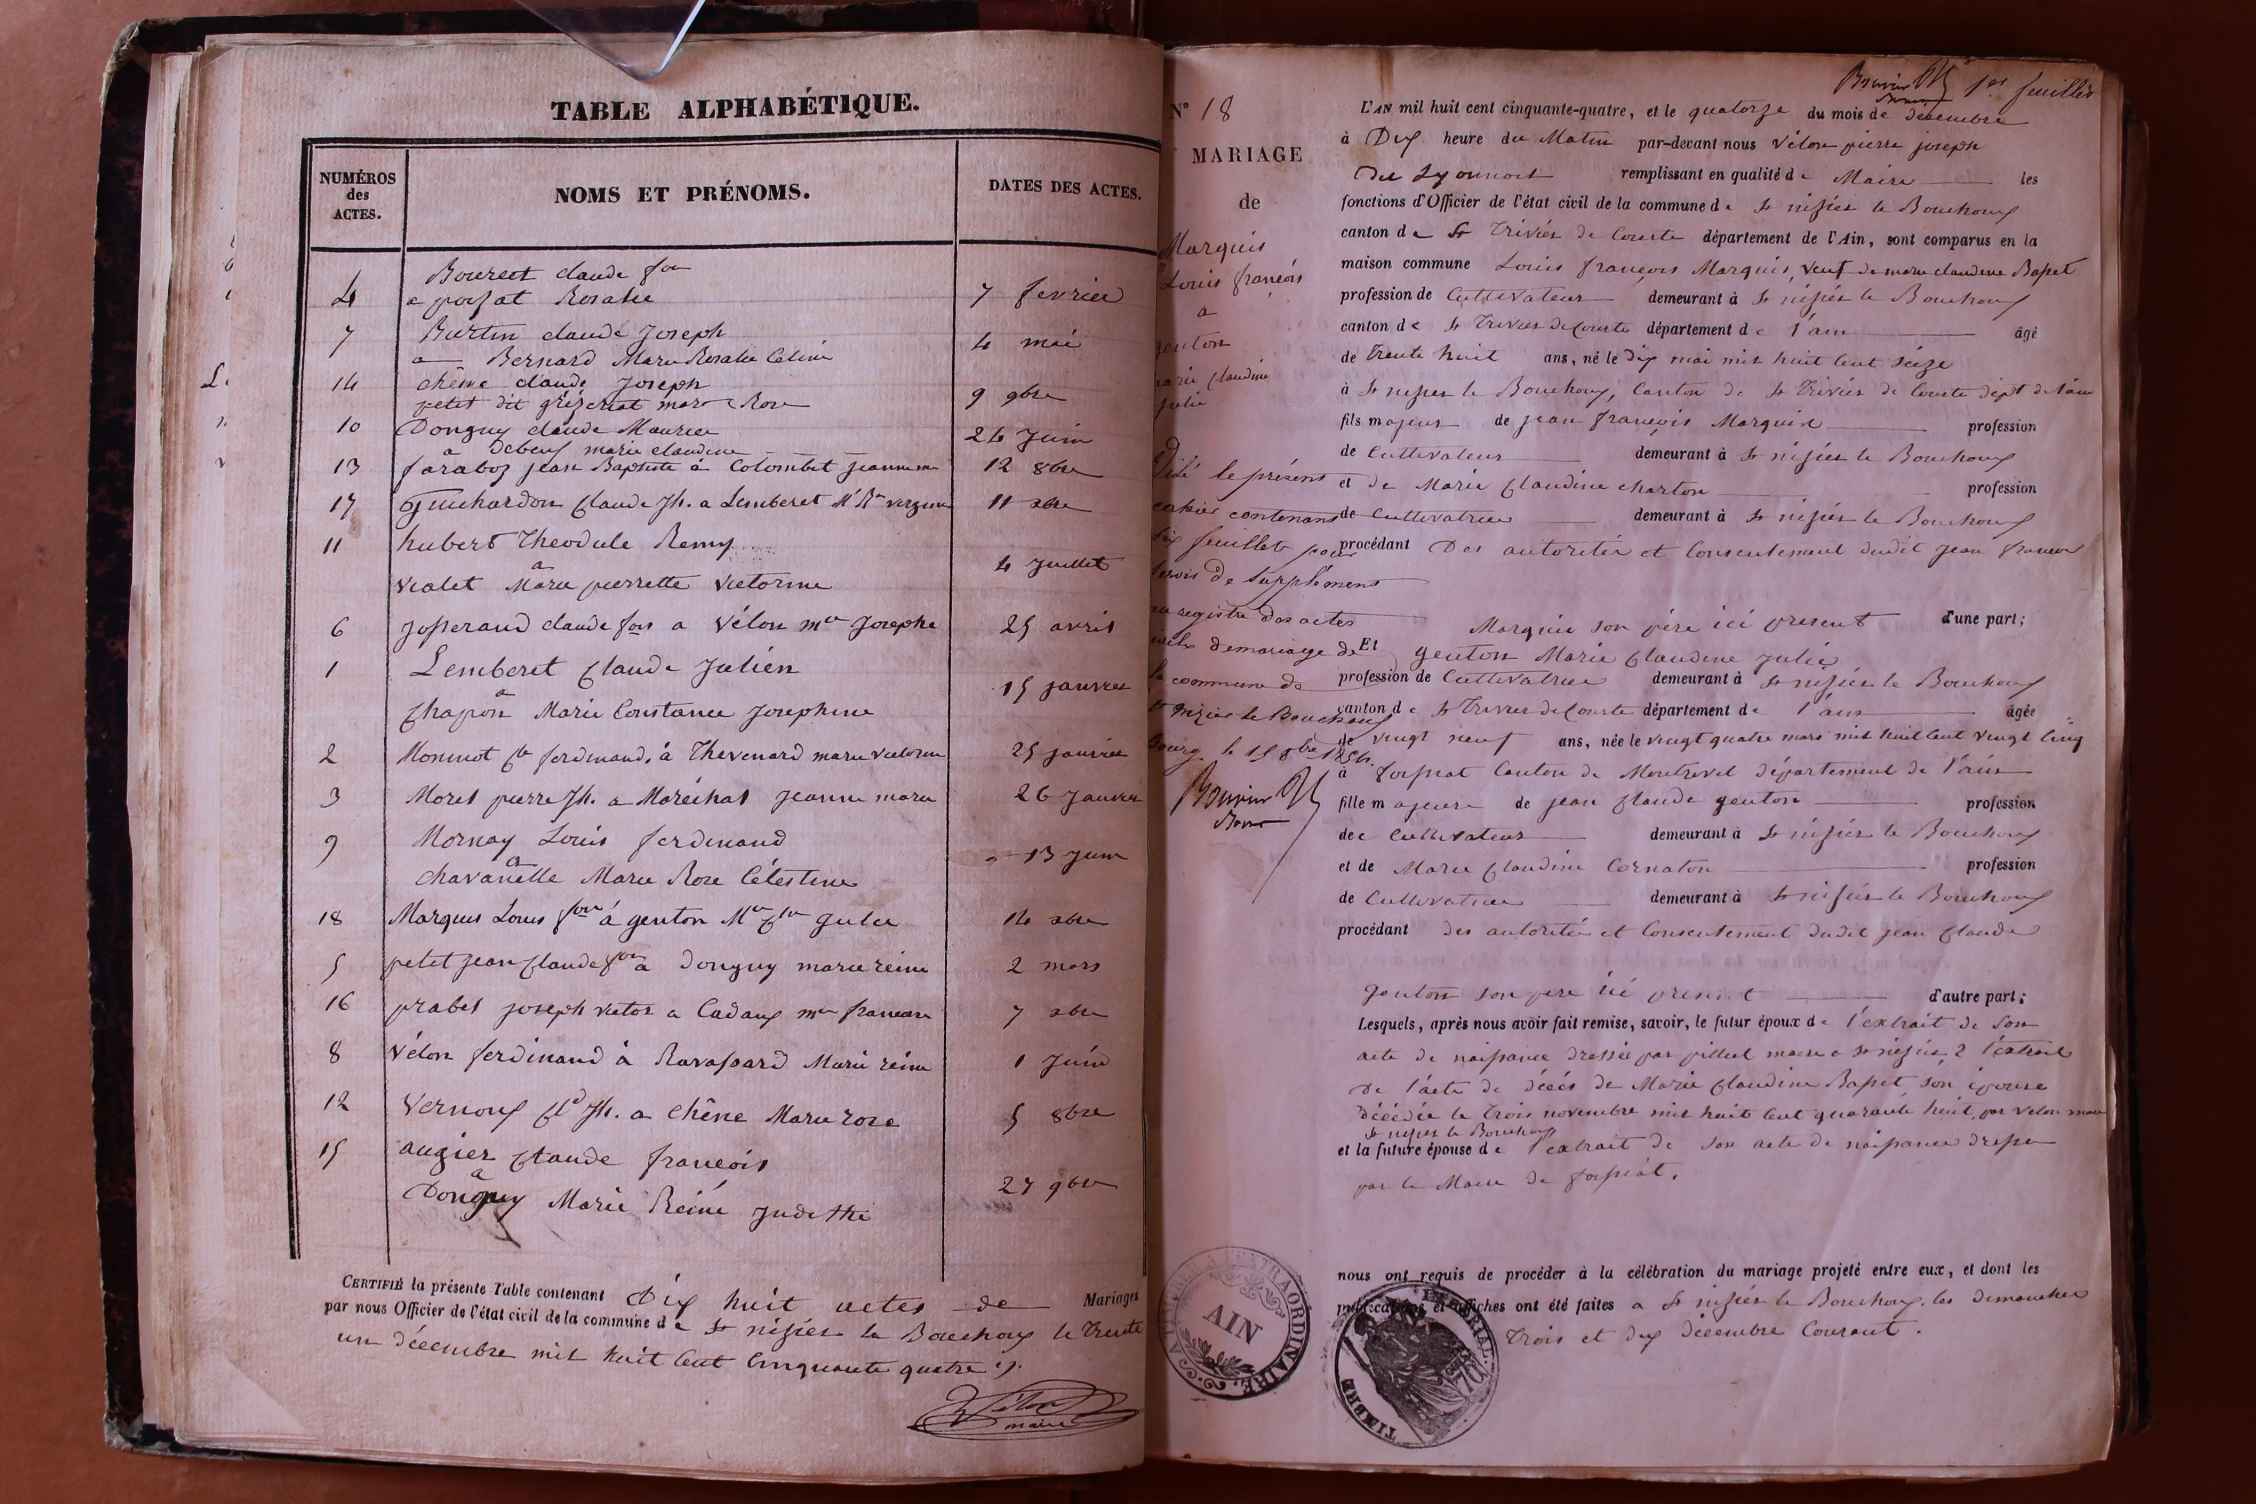 TABLE ALPHABÉTIQUE.
NUMÉROS des ACTES.
NOMS ET PRÉNOMS.
DATES DES ACTES.
4 Bourcet claude fois
a poisat Rosalie 7 fevrier
7 Burtin claude Joseph
a Bernard Marie Rosalie Celine 4 mai
14 chêne claude Joseph
petit dit grézeriat marie Rose 9 9bre
10 Donguy claude Maurice
a Debeuf marie claudine 26 Juin
13 faraboz jean Baptiste à Colombet jeanne me 12 8bre
17 Guichardon Claude Jh. a Lemberet Me Re virginie 11 xbre
11 hubert Theodule Remy
a
vialet Marie pierrette victorine 4 Juillet
6 josserand claude fois a Vélon mie Josephe 25 avril
1 Lemberet Claude Julien
a
Chapon Marie Constance Josephine 15 janvier
2 Monnot Cde ferdinand, à Thevenard marie victorine 25 janvier
3 Morel pierre Jh. a Maréchal Jeanne marie 26 Janvier
9 Mornay Louis ferdinand
a
chavanelle Marie Rose Célestine 13 Juin
18 Marquis Louis fois à genton Mie Cine Julie 14 xbre
5 petitjean Claude fois à donguy marie reine 2 mars
16 prabel joseph victor a Cadoux mie francoise 7 xbre
8 Vélon ferdinand à Ravassard Marie reine 1 Juin
12 Vernoux Cd Jh. a chêne Marie rose 5 8bre
15 augier Claude françois
a
Donguy Marie Reine Judithe 27 9bre
CERTIFIÉ la présente Table contenant Dix huit actes de Mariages
par nous Officier de l'état civil de la commune de St nisier le Bouchoux le trente
un décembre mil huit cent cinquante quatre ./.
Vélon
maire
Bouvier
1er feuillet
N° 18
MARIAGE
de
Marquis
Louis françois
a
genton
marie Claudine
julie
Coté le présent
cahier contenant
six feuillets pour
servir de supplément
au registre des actes
civils de mariage de
la commune de
St Nizier le Bouchoux
Bourg, le 15 8bre 1854.
Bouvier
L'AN mil huit cent cinquante-quatre, et le quatorze du mois de décembre
à Dix heure du Matin par-devant nous Vélon pierre joseph
remplissant en qualité de Maire les
fonctions d'Officier de l'état civil de la commune de St nisier le Bouchoux
canton de St Trivier de Courte département de l'Ain, sont comparus en la
maison commune Louis françois Marquis, veuf de marie claudine Basset
profession de Cultivateur demeurant à St nisier le Bouchoux
canton de St Trivier de Courte département de l'ain âgé
de trente huit ans, né le dix mai mil huit cent seize
à St nisier le Bouchoux, canton de St Trivier de Courte dépt de l'ain
fils majeur de jean françois Marquis profession
de Cultivateur demeurant à St nisier le Bouchoux
et de Marie Claudine charton profession
de Cultivatrice demeurant à St nisier le Bouchoux
procédant Des autorité et Consentement dudit jean françois
Marquis son père ici présent d'une part;
Et genton Marie Claudine Julie
profession de Cultivatrice demeurant à St nisier le Bouchoux
canton de St Trivier de Courte département de l'ain âgée
de vingt neuf ans, née le vingt quatre mars mil huit cent vingt cinq
à foissiat Canton de Montrevel département de l'ain
fille majeure de jean Claude genton profession
de Cultivateur demeurant à St nisier le Bouchoux
et de Marie Claudine Cornaton profession
de Cultivatrice demeurant à St nisier le Bouchoux
procédant des autorité et Consentement dudit jean Claude
genton son père ici présent d'autre part;
Lesquels, après nous avoir fait remise, savoir, le futur époux de l'extrait de son
acte de naissance dressée par maire a St nisier, 2 l'extrait
de l'acte de décés de Marie Claudine Basset son épouse
décédée le trois novembre mil huit cent quarante huit, par Velon maire
St nisier le Bouchoux
et la future épouse de l'extrait de son acte de naissance dressé
par le Maire de foissiat.
nous ont requis de procéder à la célébration du mariage projeté entre eux, et dont les
publications et affiches ont été faites a St nisier le Bouchoux. les dimanches
trois et dix décembre Courant.
EXTRAORDINAIRE
AIN
TIMBRE IMPÉRIAL